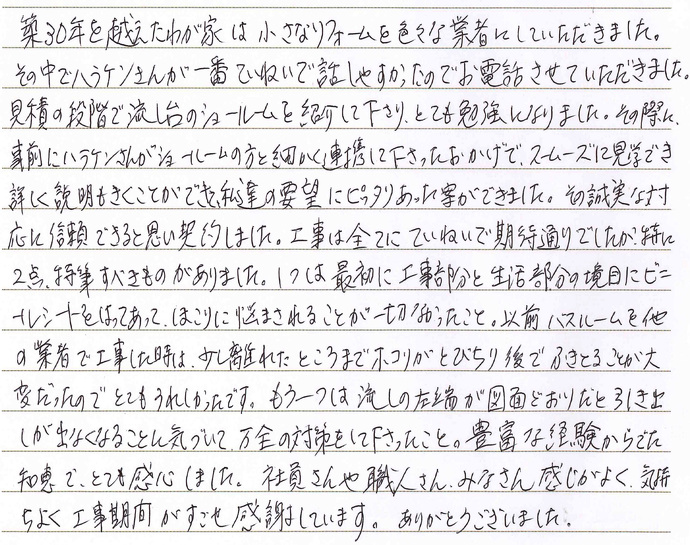 築30年を越えたわが家は小さなリフォームを色々な業者にしていただきました。
その中でハラケンさんが一番ていねいで話しやすかったのでお電話させていただきました。
見積の段階で流し台のショールームを紹介して下さり、とても勉強になりました。その際に、
事前にハラケンさんがショールームの方と細かく連携して下さったおかげで、スムーズに見学でき
詳しく説明もきくことができ、私達の要望にピッタリあった案ができました。その誠実な対
応に信頼できると思い契約しました。工事は全てにていねいで期待通りでしたが、特に
2点、特筆すべきものがありました。1つは最初に工事部分と生活部分の境目にビニ
ールシートをはってあって、ほこりに悩まされることが一切なかったこと。以前バスルームを他
の業者で工事した時は、少し離れたところまでホコリがとびちり後でふきとることが大
変だったのでとてもうれしかったです。もう一つは流しの左端が図面どおりだと引き出
しが出なくなることに気づいて、万全の対策をして下さったこと。豊富な経験からでた
知恵で、とても感心しました。社員さんや職人さん、みなさん感じがよく、気持
ちよく工事期間がすごせ感謝しています。ありがとうございました。